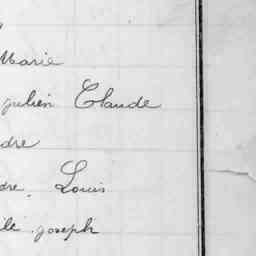 Marie
julien Claude
dre
dre, Louis
ile joseph